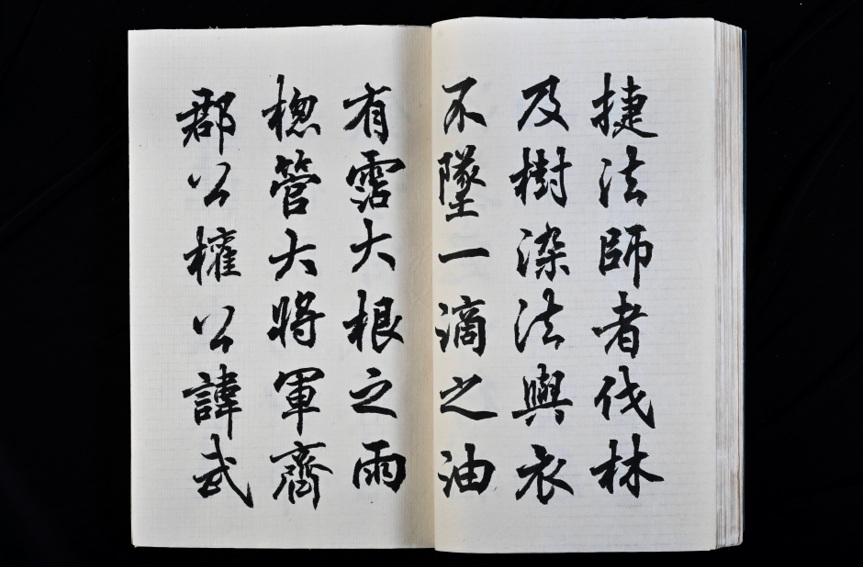 捷法師者伐林
及樹染法與衣
不墜一滴之油
有霑大根之雨
揔管大將軍齊
郡公權公諱武